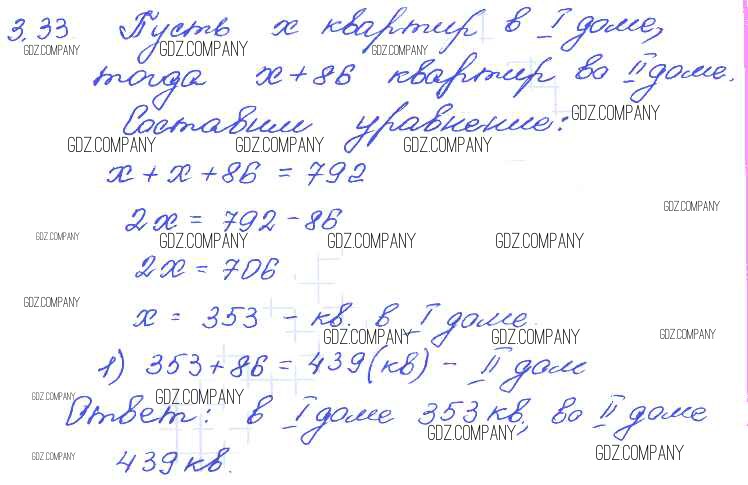 3.33. Пусть x квартир в I доме,
GDZ.COMPANY GDZ.COMPANY GDZ.COMPANY
тогда x+86 квартир во II доме.
GDZ.COMPANY
Составим уравнение:
GDZ.COMPANY GDZ.COMPANY GDZ.COMPANY
x + x + 86 = 792
GDZ.COMPANY
2x = 792 - 86
GDZ.COMPANY GDZ.COMPANY GDZ.COMPANY GDZ.COMPANY
2x = 706
GDZ.COMPANY
x = 353 - кв. в I доме.
GDZ.COMPANY GDZ.COMPANY GDZ.COMPANY
1) 353 + 86 = 439 (кв) - II дом
GDZ.COMPANY GDZ.COMPANY
Ответ: в I доме 353 кв, во II доме
GDZ.COMPANY GDZ.COMPANY GDZ.COMPANY
439 кв.